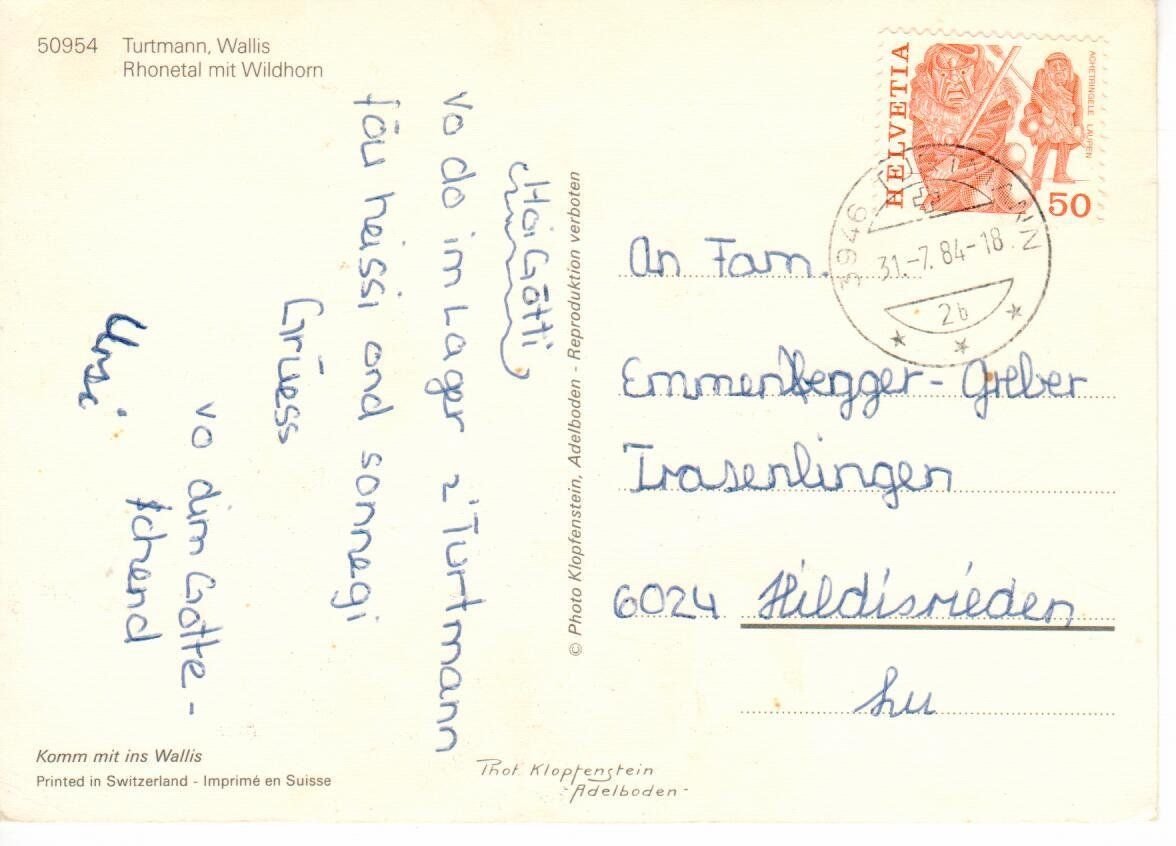 50954 Turtmann, Wallis
Rhonetal mit Wildhorn
Hoi Götti
vo do im Lager z'Turtmann
föu heissi ond sonnegi
Grüess
vo dim Gotte-
chend
Ursi
Komm mit ins Wallis
Printed in Switzerland - Imprimé en Suisse
© Photo Klopfenstein, Adelboden - Reproduktion verboten
Phot. Klopfenstein
- Adelboden -
HELVETIA
ACHETRINGELE LAUPEN
50
3946 TURTMANN
31.-7.84-18
2b
An Fam.
Emmenegger - Greber
Trasenlingen
6024 Hildisrieden
Lu